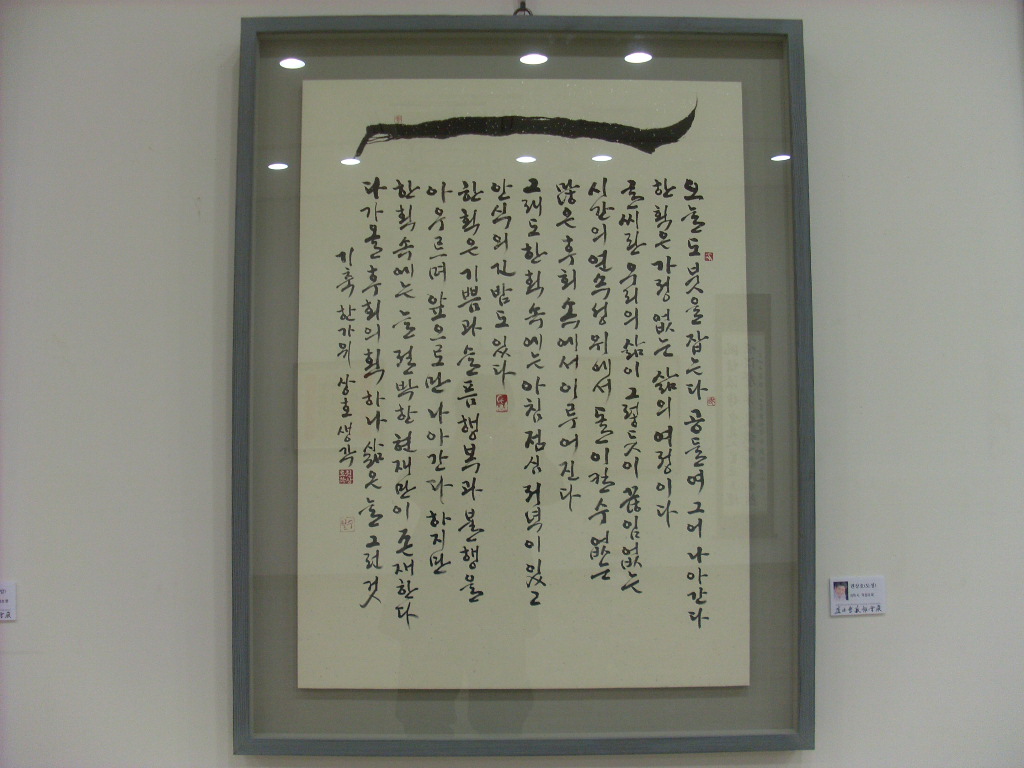 오늘도 붓을 잡는다 공들여 그어 나아간다
한 획은 가령 없는 삶의 여정이다
글씨란 우리의 삶이 그렇듯이 끊임없는
시간의 연속성 위에서 돌이킬 수 없는
많은 후회 속에서 이루어진다
그래도 한 획 속에는 아침 점심 저녁이 있고
안식의 긴 밤도 있다
한 획은 기쁨과 슬픔 행복과 불행을
아우르며 앞으로만 나아간다 하지만
한 획 속에는 늘 절박한 현재만이 존재한다
다가올 후회의 획 하나 삶은 늘 그런 것
기축 한가위 상호 생각